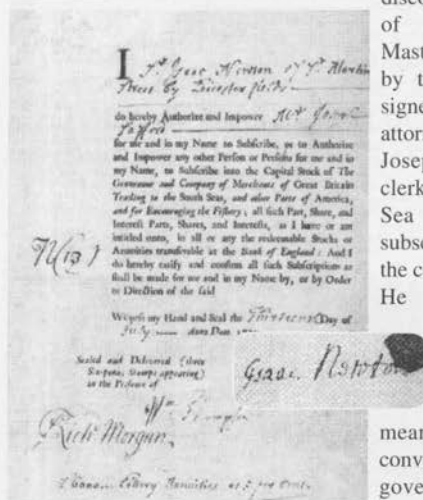 I Sr. Isaac Newton of St. Martins
Street by Leicester fields
do hereby Authorize and Impower Mr
for me and in my Name to Subscribe, or to Authorize
and Impower any other Person or Persons for me and in
my Name, to Subscribe into the Capital Stock of The
Governour and Company of Merchants of Great Britain
Trading to the South Seas, and other Parts of America,
and for Encouraging the Fishery; all such Part, Share, and
Interest Parts, Shares, and Interests, as I have or am
intitled unto, in all or any the redeemable Stocks or
Annuities transferable at the Bank of England: And I
do hereby ratify and confirm all such Subscriptions as
shall be made for me and in my Name by, or by Order
or Direction of the said
Witness my Hand and Seal the Day of
July Dom.
Sealed and Delivered (three
Sixpenny Stamps appearing)
in the Presence of
Isaac Newton
Richd Morgan
of
Mast
by t
signe
attor
Josep
clerk
Sea
subse
the c
He
mean
conv
gove